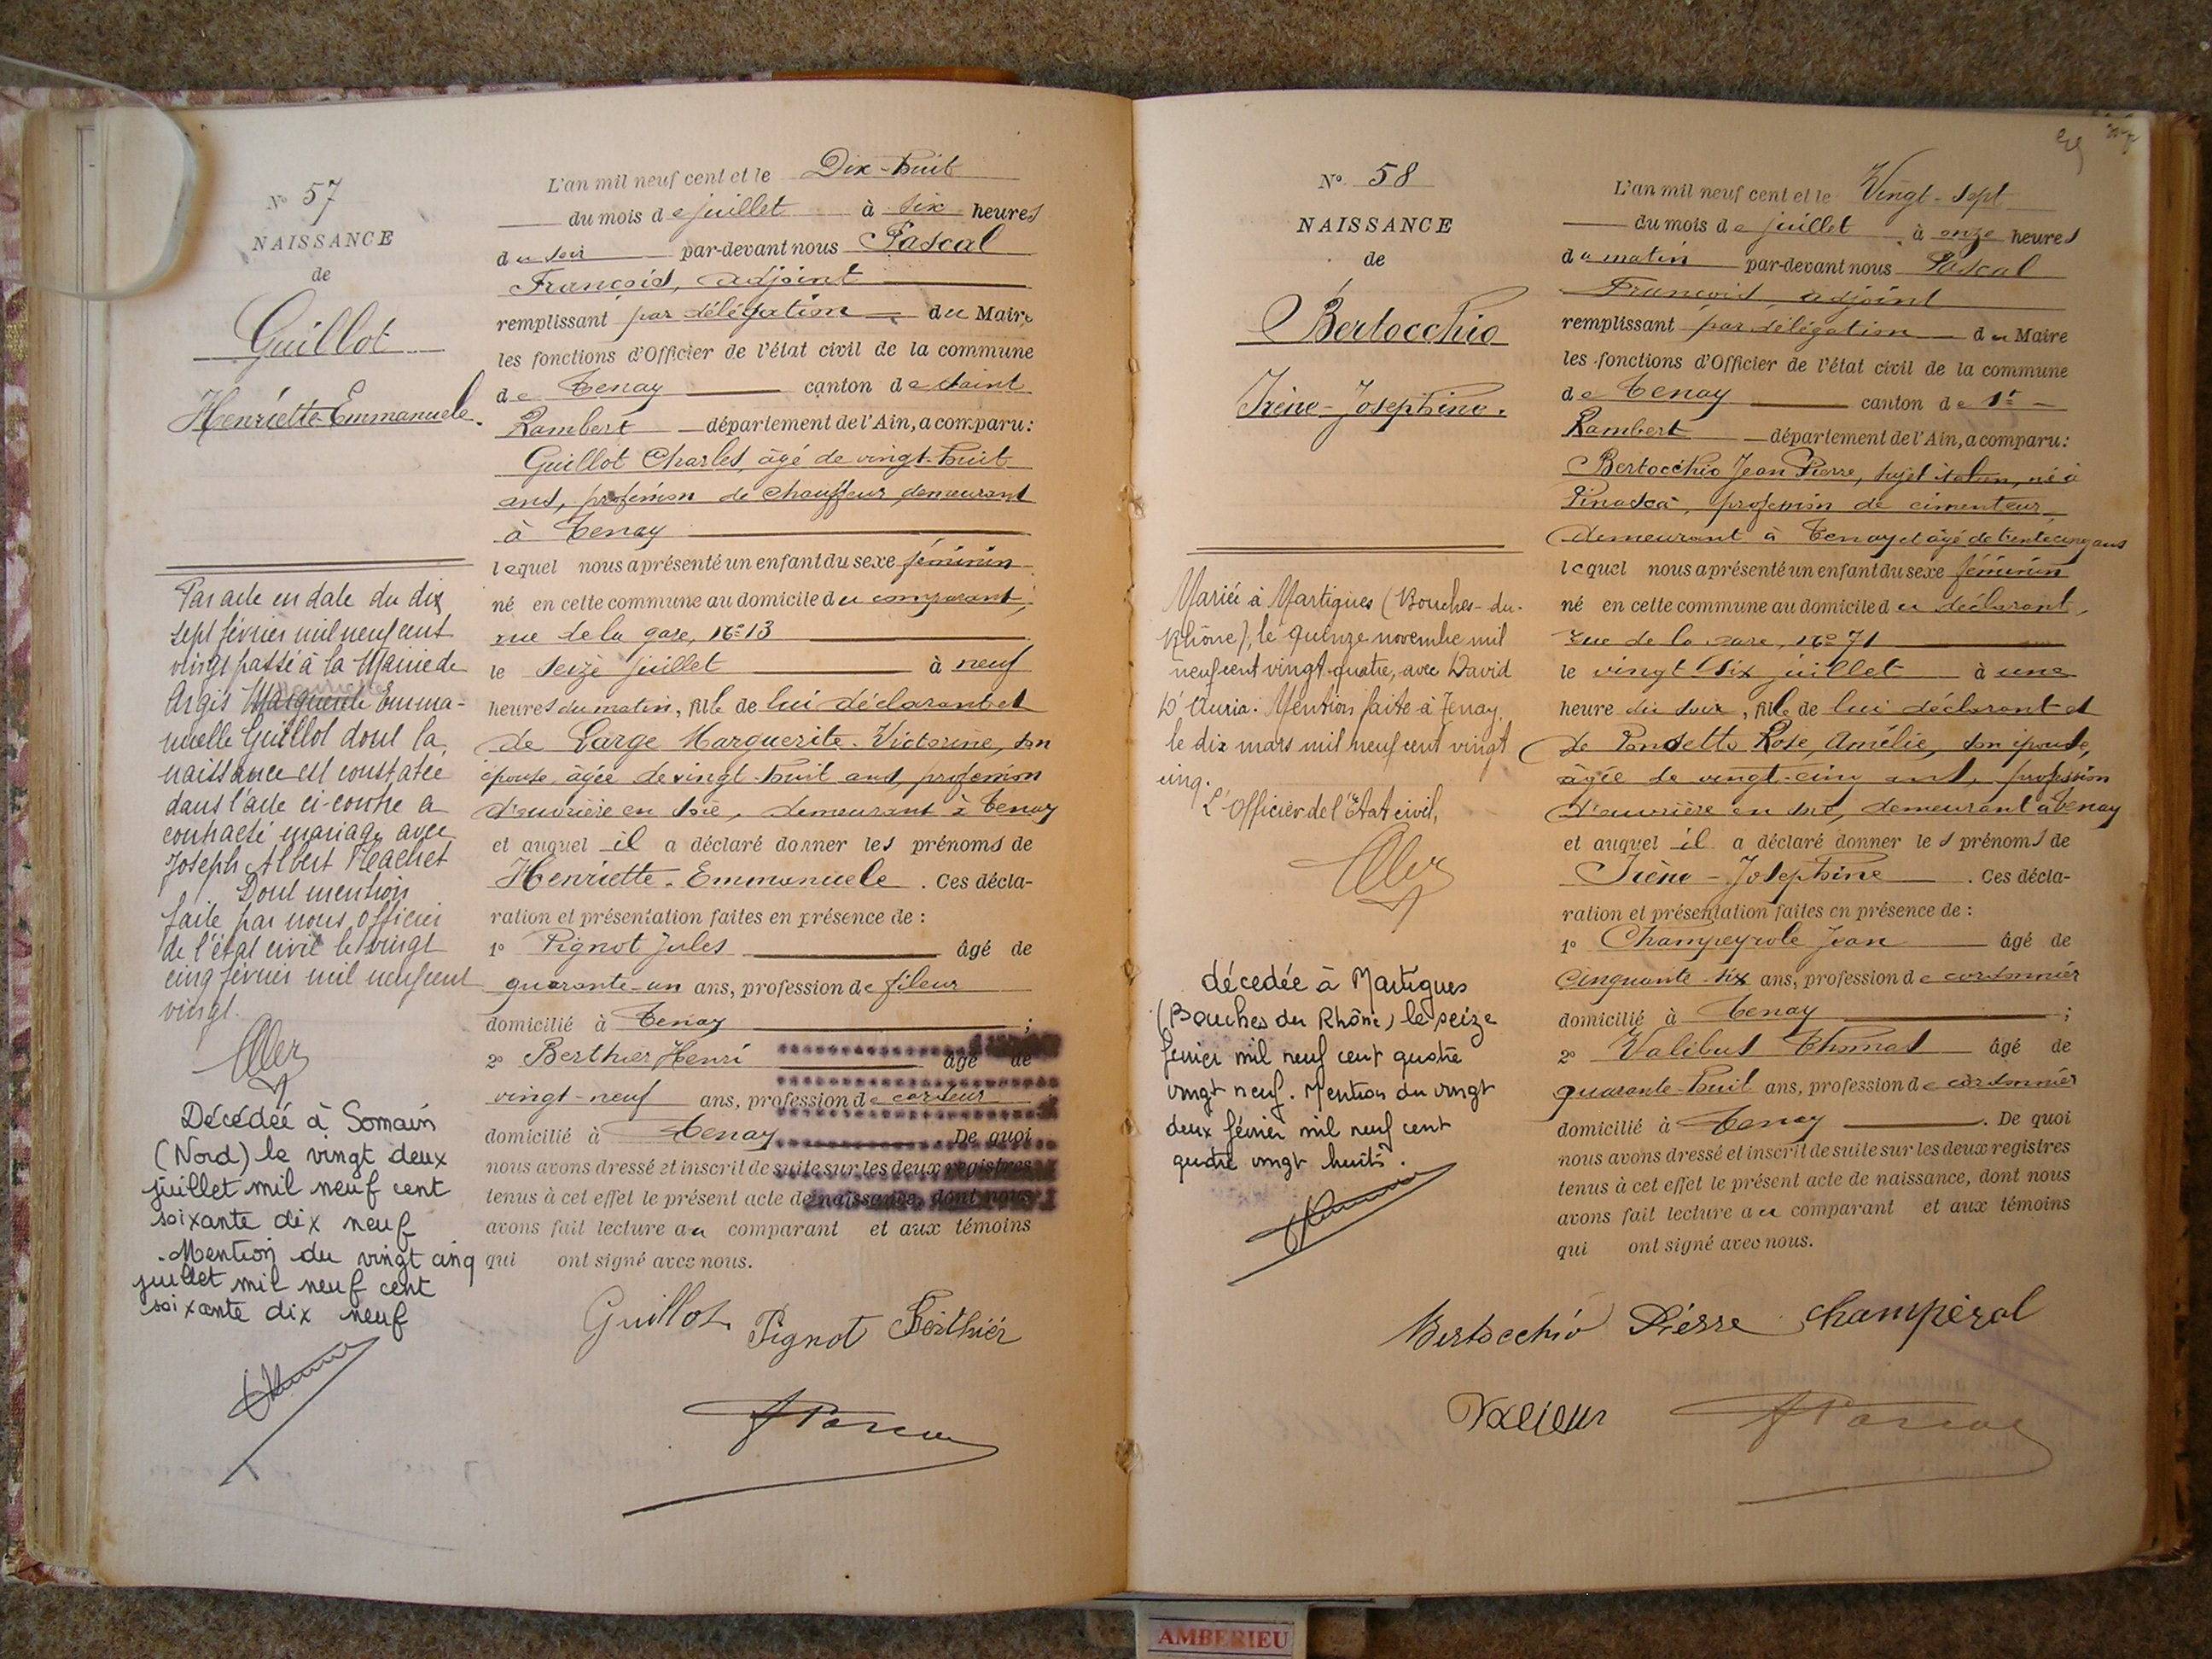 No 57
NAISSANCE
de
Guillot
Henriette-Emmanuele.
Par acte en date du dix
sept février mil neuf cent
vingt passé à la Mairie de
Argis Marguerite Henriette Emma-
nuelle Guillot dont la
naissance est constatée
dans l'acte ci-contre a
contracté mariage avec
Joseph Albert
Dont mention
faite par nous officier
de l'état civil le vingt
cinq février mil neuf cent
vingt.
Décédée à Somain
(Nord) le vingt deux
juillet mil neuf cent
soixante dix neuf
. Mention du vingt cinq
juillet mil neuf cent
soixante dix neuf
L'an mil neuf cent et le Dix-huit
du mois de juillet à six heures
du soir par-devant nous Pascal
François, adjoint
remplissant par délégation du Maire
les fonctions d'Officier de l'état civil de la commune
de Tenay canton de Saint
Rambert département de l'Ain, a comparu :
Guillot Charles, âgé de vingt-huit
ans, profession de chauffeur, demeurant
à Tenay
lequel nous a présenté un enfant du sexe féminin
né en cette commune au domicile du comparant,
rue de la gare, No 13
le seize juillet à neuf
heures du matin, fille de lui déclarant et
de Large Marguerite-Victorine, son
épouse, âgée de vingt-huit ans, profession
d'ouvrière en soie, demeurant à Tenay
et auquel il a déclaré donner les prénoms de
Henriette-Emmanuele. Ces décla-
ration et présentation faites en présence de :
1o Pignot Jules âgé de
quarante-un ans, profession de fileur
domicilié à Tenay ;
2o Berthier Henri âgé de
vingt-neuf ans, profession de cardeur
domicilié à Tenay. De quoi
nous avons dressé et inscrit de suite sur les deux registres
tenus à cet effet le présent acte de naissance, dont nous
avons fait lecture au comparant et aux témoins
qui ont signé avec nous.
Guillot Pignot Berthier
No. 58
NAISSANCE
de
Bertocchio
Irène-Joséphine.
Mariée à Martigues (Bouches-du-
Rhône), le quinze novembre mil
neuf cent vingt-quatre, avec David
D'Auria. Mention faite à Tenay
le dix mars mil neuf cent vingt
cinq.
L'Officier de l'Etat civil,
décedée à Martigues
(Bouches du Rhône) le seize
février mil neuf cent quatre
vingt neuf. Mention du vingt
deux février mil neuf cent
quatre vingt huit.
L'an mil neuf cent et le Vingt-sept
du mois de juillet à onze heures
du matin par-devant nous Pascal
François, adjoint
remplissant par délégation du Maire
les fonctions d'Officier de l'état civil de la commune
de Tenay canton de St
Rambert département de l'Ain, a comparu :
Bertocchio Jean Pierre, sujet italien, né à
Pinasca, profession de cimenteur,
demeurant à Tenay et âgé de trente cinq ans
lequel nous a présenté un enfant du sexe féminin
né en cette commune au domicile du déclarant,
rue de la gare, No 71
le vingt-six juillet à une
heure du soir, fille de lui déclarant et
de Ponsetto Rose, Amélie, son épouse,
âgée de vingt-cinq ans, profession
d'ouvrière en soie, demeurant à Tenay
et auquel il a déclaré donner les prénoms de
Irène-Joséphine. Ces décla-
ration et présentation faites en présence de :
1o Champeyrole Jean âgé de
cinquante-six ans, profession de cordonnier
domicilié à Tenay ;
2o Valibus Thomas âgé de
quarante-huit ans, profession de cordonnier
domicilié à Tenay. De quoi
nous avons dressé et inscrit de suite sur les deux registres
tenus à cet effet le présent acte de naissance, dont nous
avons fait lecture au comparant et aux témoins
qui ont signé avec nous.
Bertocchio Pierre Champérol
AMBERIEU